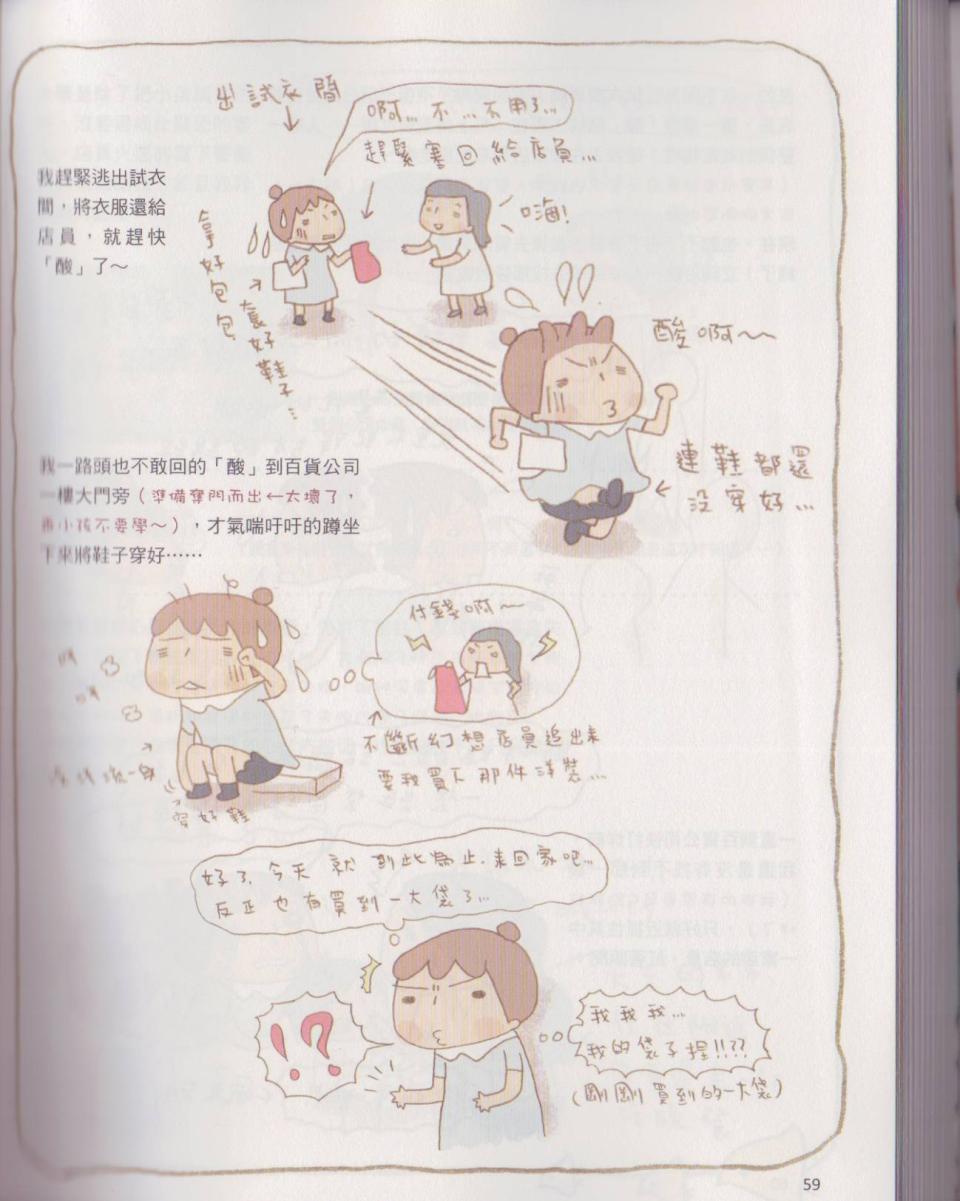 出試衣間
啊…不…不用了…
趕緊塞回給店員…
我趕緊逃出試衣
間，將衣服還給
店員，就趕快
「酸」了～
嗨!
拿好包包、
套好鞋子…
酸啊～
連鞋都還
沒穿好…
我一路頭也不敢回的「酸」到百貨公司
一樓大門旁（準備奪門而出←太壞了，
小孩不要學～），才氣喘吁吁的蹲坐
下來將鞋子穿好……
付錢啊～
不斷幻想店員追出來
要我買下那件洋裝…
穿好鞋
好了,今天就到此為止,來回家吧…
反正也有買到一大袋了…
!?
我我我…
我的袋子捏!!??
(剛剛買到的一大袋)
59